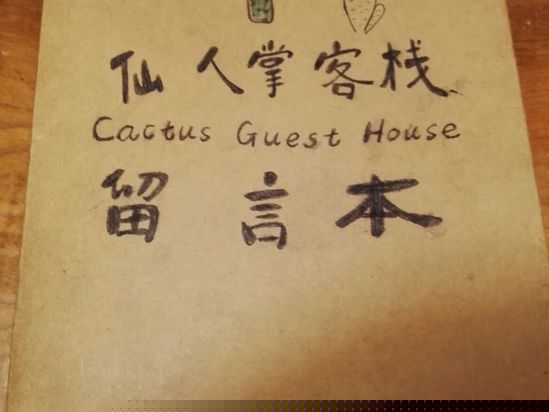 仙人掌客栈
Cactus Guest House
留言本